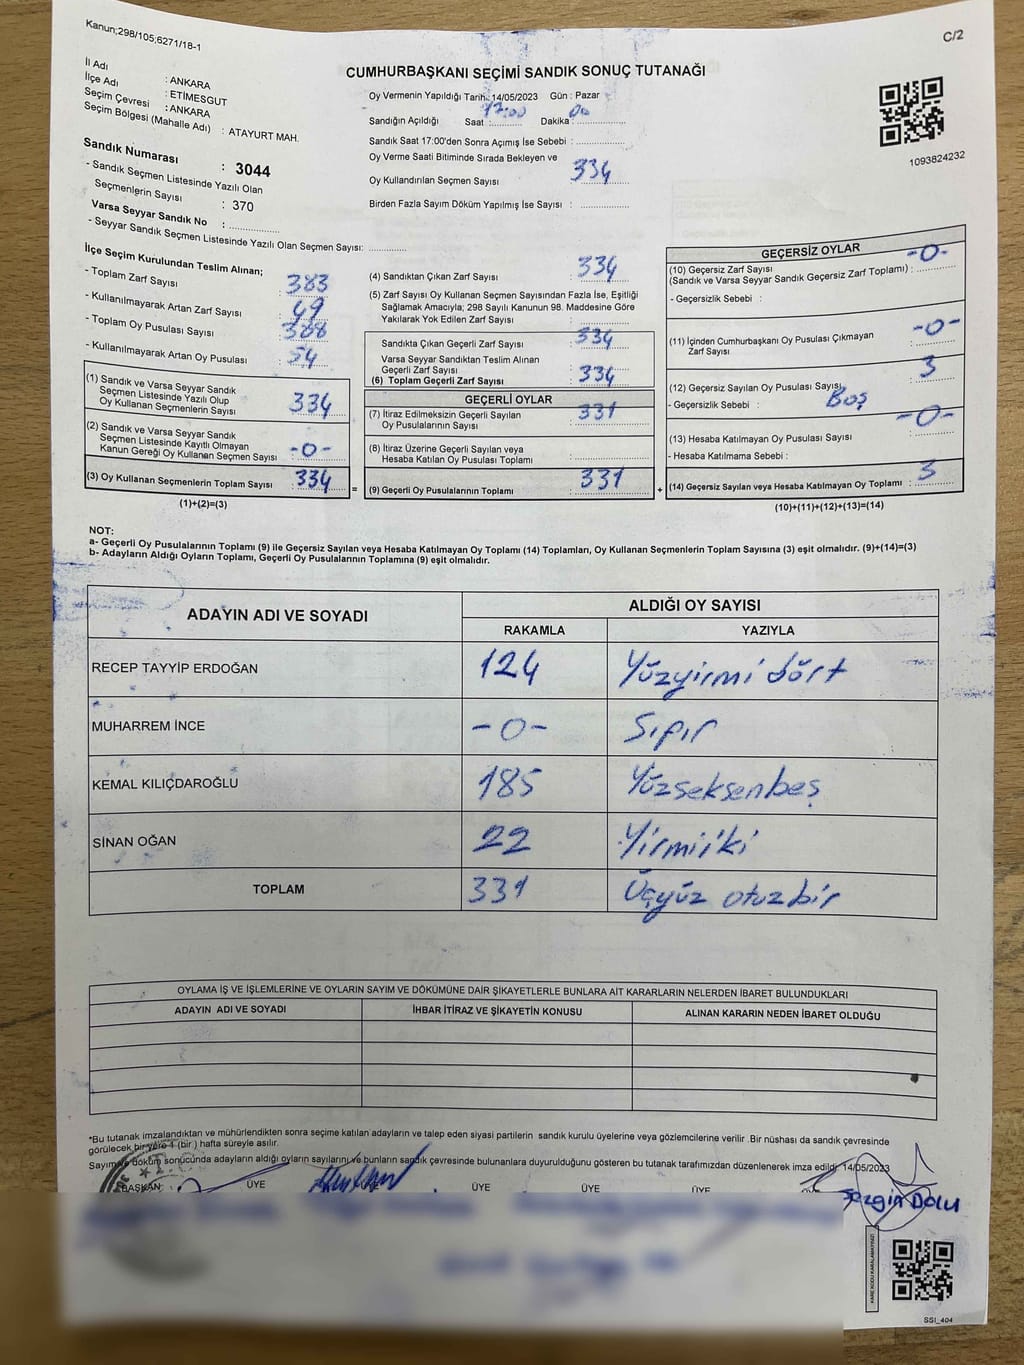 Kanun;298/105;6271/18-1
C/2
CUMHURBAŞKANI SEÇİMİ SANDIK SONUÇ TUTANAĞI
İl Adı : ANKARA
İlçe Adı : ETİMESGUT
Seçim Çevresi : ANKARA
Seçim Bölgesi (Mahalle Adı) : ATAYURT MAH.
Sandık Numarası : 3044
- Sandık Seçmen Listesinde Yazılı Olan
Seçmenlerin Sayısı : 370
Varsa Seyyar Sandık No : ................
- Seyyar Sandık Seçmen Listesinde Yazılı Olan Seçmen Sayısı: ............
Oy Vermenin Yapıldığı Tarih: 14/05/2023 Gün : Pazar
Sandığın Açıldığı Saat : 17:00 Dakika : 00
Sandık Saat 17:00'den Sonra Açımış İse Sebebi : ................
Oy Verme Saati Bitiminde Sırada Bekleyen ve
Oy Kullandırılan Seçmen Sayısı : 334
Birden Fazla Sayım Döküm Yapılmış İse Sayısı : ................
1093824232
İlçe Seçim Kurulundan Teslim Alınan;
- Toplam Zarf Sayısı : 383
- Kullanılmayarak Artan Zarf Sayısı : 49
- Toplam Oy Pusulası Sayısı : 388
- Kullanılmayarak Artan Oy Pusulası : 54
(1) Sandık ve Varsa Seyyar Sandık
Seçmen Listesinde Yazılı Olup
Oy Kullanan Seçmenlerin Sayısı : 334
(2) Sandık ve Varsa Seyyar Sandık
Seçmen Listesinde Kayıtlı Olmayan
Kanun Gereği Oy Kullanan Seçmen Sayısı : -0-
(3) Oy Kullanan Seçmenlerin Toplam Sayısı : 334
(1)+(2)=(3)
(4) Sandıktan Çıkan Zarf Sayısı : 334
(5) Zarf Sayısı Oy Kullanan Seçmen Sayısından Fazla İse, Eşitliği
Sağlamak Amacıyla; 298 Sayılı Kanunun 98. Maddesine Göre
Yakılarak Yok Edilen Zarf Sayısı : ................
Sandıkta Çıkan Geçerli Zarf Sayısı : 334
Varsa Seyyar Sandıktan Teslim Alınan
Geçerli Zarf Sayısı : ................
(6) Toplam Geçerli Zarf Sayısı : 334
GEÇERLİ OYLAR
(7) İtiraz Edilmeksizin Geçerli Sayılan
Oy Pusulalarının Sayısı : 331
(8) İtiraz Üzerine Geçerli Sayılan veya
Hesaba Katılan Oy Pusulası Toplamı : ................
= (9) Geçerli Oy Pusulalarının Toplamı : 331 +
GEÇERSİZ OYLAR
(10) Geçersiz Zarf Sayısı
(Sandık ve Varsa Seyyar Sandık Geçersiz Zarf Toplamı) : -0-
- Geçersizlik Sebebi :
(11) İçinden Cumhurbaşkanı Oy Pusulası Çıkmayan
Zarf Sayısı : -0-
(12) Geçersiz Sayılan Oy Pusulası Sayısı : 3
- Geçersizlik Sebebi : Boş
(13) Hesaba Katılmayan Oy Pusulası Sayısı : -0-
- Hesaba Katılmama Sebebi :
(14) Geçersiz Sayılan veya Hesaba Katılmayan Oy Toplamı : 3
(10)+(11)+(12)+(13)=(14)
NOT:
a- Geçerli Oy Pusulalarının Toplamı (9) ile Geçersiz Sayılan veya Hesaba Katılmayan Oy Toplamı (14) Toplamları, Oy Kullanan Seçmenlerin Toplam Sayısına (3) eşit olmalıdır. (9)+(14)=(3)
b- Adayların Aldığı Oyların Toplamı, Geçerli Oy Pusulalarının Toplamına (9) eşit olmalıdır.
ADAYIN ADI VE SOYADI ALDIĞI OY SAYISI
RAKAMLA YAZIYLA
RECEP TAYYİP ERDOĞAN 124 Yüzyirmi dört
MUHARREM İNCE -0- Sıfır
KEMAL KILIÇDAROĞLU 185 Yüzseksenbeş
SİNAN OĞAN 22 Yirmiiki
TOPLAM 331 Üçyüz otuzbir
OYLAMA İŞ VE İŞLEMLERİNE VE OYLARIN SAYIM VE DÖKÜMÜNE DAİR ŞİKAYETLERLE BUNLARA AİT KARARLARIN NELERDEN İBARET BULUNDUKLARI
ADAYIN ADI VE SOYADI İHBAR İTİRAZ VE ŞİKAYETİN KONUSU ALINAN KARARIN NEDEN İBARET OLDUĞU
*Bu tutanak imzalandıktan ve mühürlendikten sonra seçime katılan adayların ve talep eden siyasi partilerin sandık kurulu üyelerine veya gözlemcilerine verilir .Bir nüshası da sandık çevresinde
görülecek bir yere 1 (bir ) hafta süreyle asılır.
Sayım ve döküm sonucunda adayların aldığı oyların sayılarını ve bunların sandık çevresinde bulunanlara duyurulduğunu gösteren bu tutanak tarafımızdan düzenlenerek imza edildi. 14/05/2023
BAŞKAN ÜYE ÜYE ÜYE ÜYE ÜYE ÜYE
Sezgin Dolu
KARE KODU KARALAMAYINIZ!
SSI_404